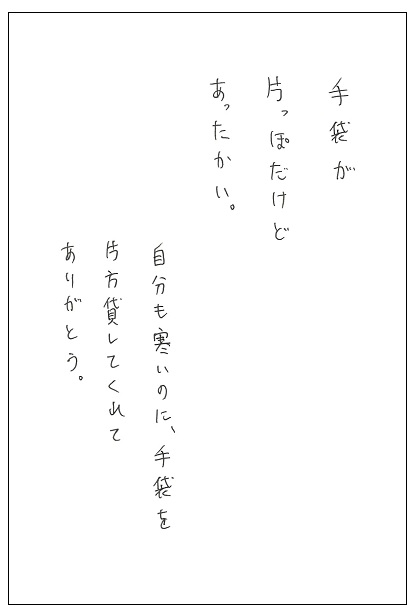 手袋が
片っぽだけど
あったかい。
自分も寒いのに、手袋を
片方貸してくれて
ありがとう。